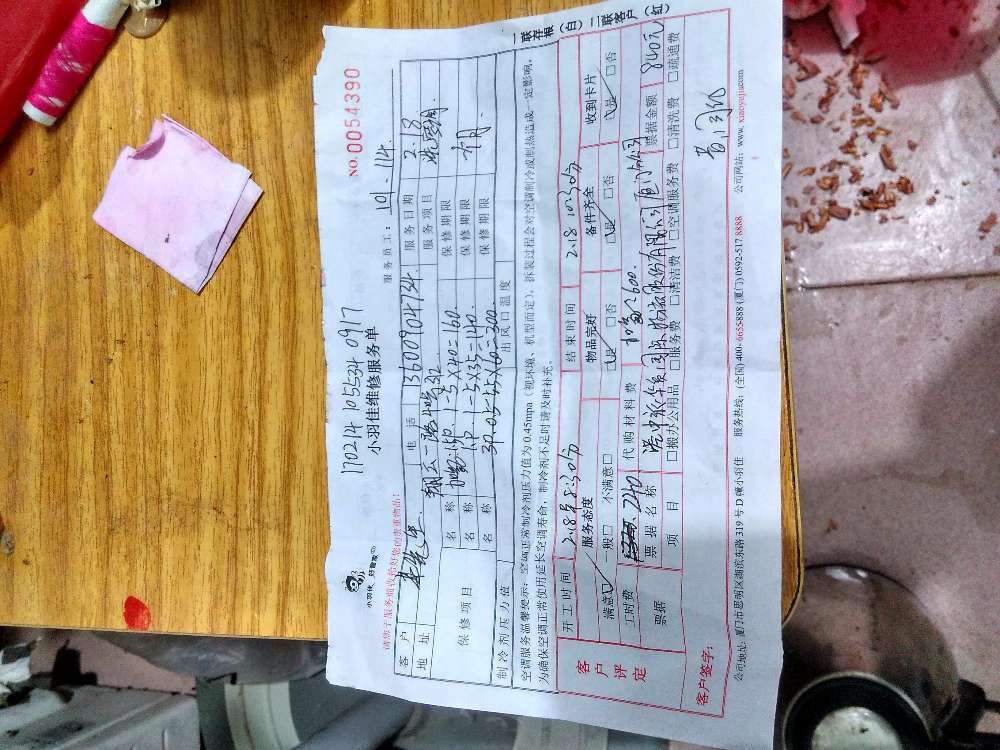 NO.0054390
17021410553409​17
小羽佳 好管家
小羽佳维修服务单
服务员工: 101.114
请您于服务前收拾好您的贵重物品!
客户 李先生 电话 13600904734 服务日期 2.18
地址 翔云一路 服务项目
保修项目 名称 1.5P 1-5×40=160 保修期限
名称 1P 1-5×35=140 保修期限
名称 3P 5×60=300 保修期限
制冷剂压力值 出风口温度
空调服务温馨提示: 空调正常制冷剂压力值为 0.45mpa (视环境、机型而定), 拆装过程会对空调制冷或制热造成一定影响,
为确保空调正常使用延长空调寿命, 制冷剂不足时请及时补充。
客户评定
开工时间 2.18号8:30分 结束时间 2.18 10:30分
服务态度 物品完好 备件齐全 收到卡片
满意☑ 一般□ 不满意□ ☑是 □否 ☑是 □否 ☑是 □否
工时费 240 代购材料费 600
票据 票据名称 票据金额 840元
项目 □搬办公用品 □服务费 □清洁费 □空调服务费 □清洗费 □疏通费
客户签字:
一联存根(白) 二联客户(红)
公司地址: 厦门市思明区湖滨东路 319 号 D 幢小羽佳 服务热线: (全国)400-6655-888 (厦门) 0592-517 8888 公司网站: www. xiaoyujia.com